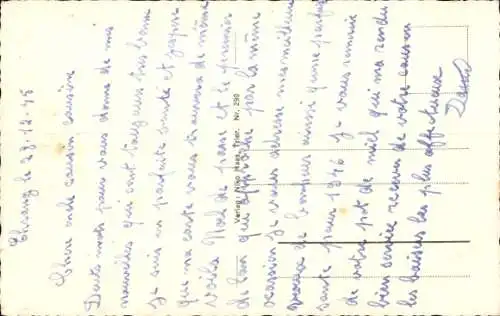 Ehrang le 28-12-45
Chère oncle cousin cousine
Deux mots pour vous donné de mes
nouvelles qui sont toujours très bonne
Je suis en parfaite santé et j'espère
que ma carte vous trouvera de même
voila Noël de passé et le premier
de l'an qui approche par la même
occasion je vous adresse mes meilleurs
voeux de bonheur ainsi qu'une parfaite
santé pour 1946 Je vous remercie
de votre pot de miel qui m'a rendu
bien service recevez de votre cousin
les baisers les plus affectueux
Verlag: Niko Haas, Trier. Nr. 290